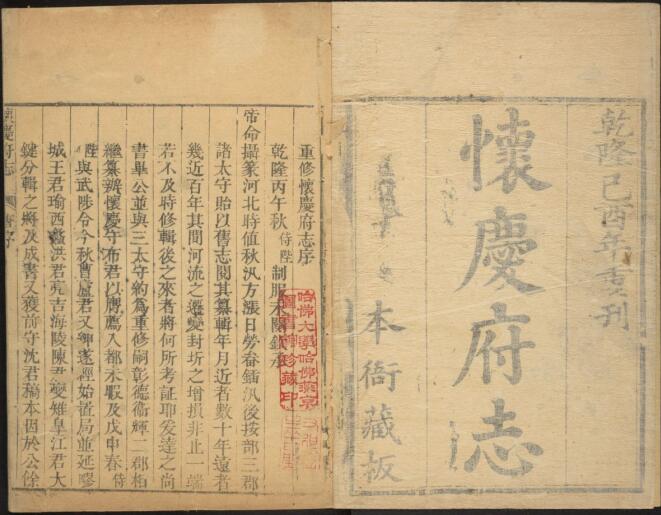 乾隆己酉年重刊
懷慶府志
本衙藏板
重修懷慶府志序
乾隆丙午秋侍陛制服未闋欽承
帝命攝篆河北時值秋汛方漲日勞畚鍤汛後按部三郡
諸太守貽以舊志閱其纂輯年月近者數十年遠者
幾近百年其間河流之遷變封圻之增損非止一端
若不及時修輯後之來者將何所考証耶爰達之尚
書畢公並與三太守約為重修嗣彰德衞輝二郡相
繼纂辦懷慶守布君以膺薦入都未暇及戊申春侍
陛與武陟令今秋曹盧君又紳遂經始置局並延謬
城王君瑜西蠡洪君亮吉海陵陳君燮雉臯江君大
鍵分輯之將及成書又獲前守沈君稿本因於公餘
哈佛大學哈佛燕京
圖書館珍藏印
懷慶府志 舊序